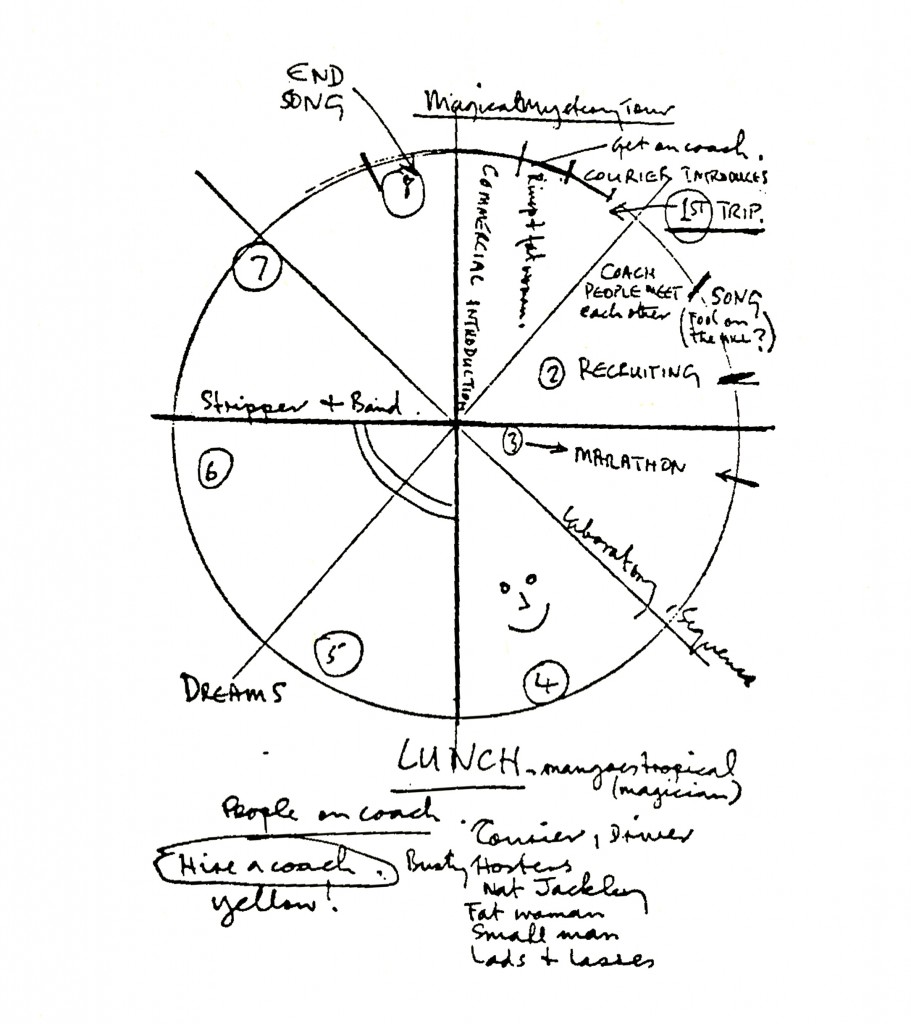 END
SONG
Magical Mystery Tour
Get on coach.
COURIER INTRODUCES
1ST TRIP.
COMMERCIAL INTRODUCTION
Ringo + fat woman.
COACH
PEOPLE MEET
each other
SONG
(Fool on
the Hill?)
2 RECRUITING
3 → MARATHON
Laboratory Sequence
4
5
DREAMS
6
Stripper + Band.
7
8
LUNCH. mangoes tropical
(magician)
People on coach.
Courier, Driver
Hire a coach.
Busty Hostess
yellow!
Nat Jackley
Fat woman
Small man
Lads + Lasses